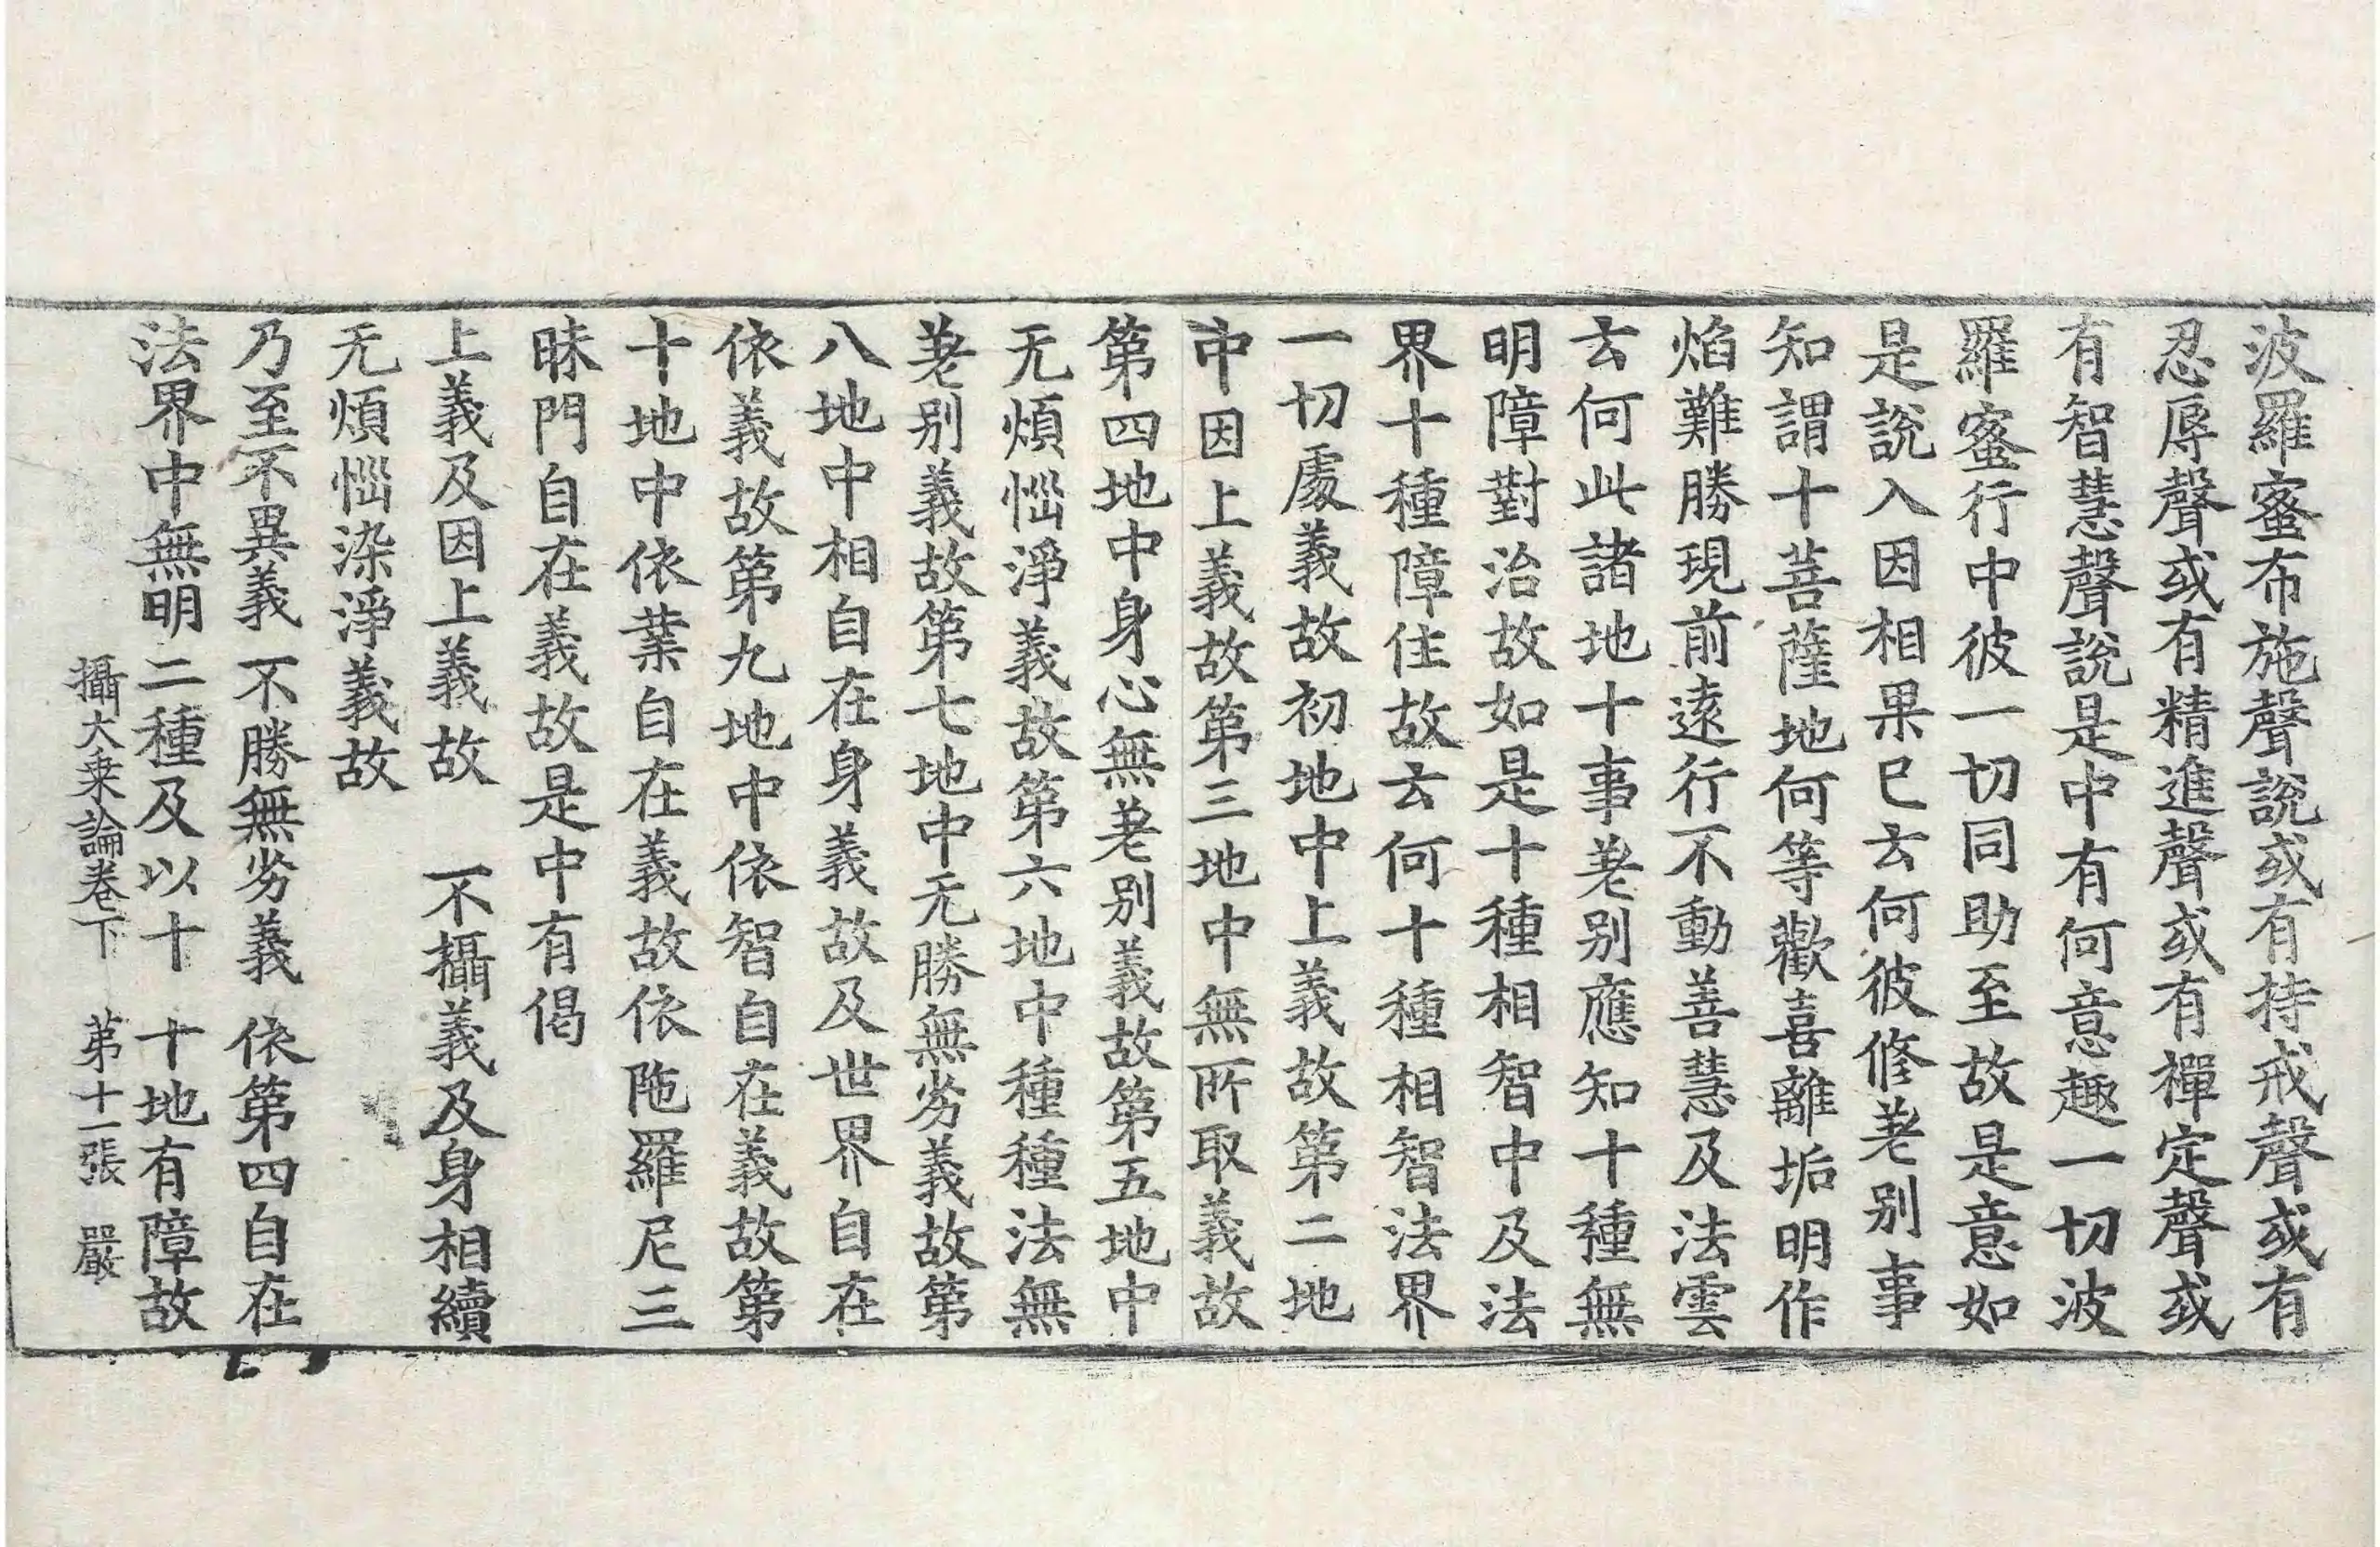 波羅蜜布施聲說或有持戒聲或有
忍辱聲或有精進聲或有禪定聲或
有智慧聲說是中有何意趣一切波
羅蜜行中彼一切同助至故是意如
是說入因相果已云何彼修差別事
知謂十菩薩地何等歡喜離垢明作
焰難勝現前遠行不動善慧及法雲
云何此諸地十事差別應知十種無
明障對治故如是十種相智中及法
界十種障住故云何十種相智法界
一切處義故初地中上義故第二地
中因上義故第三地中無所取義故
第四地中身心無差別義故第五地中
无煩惱淨義故第六地中種種法無
差別義故第七地中无勝無劣義故第
八地中相自在身義故及世界自在
依義故第九地中依智自在義故第
十地中依業自在義故依陁羅尼三
昧門自在義故是中有偈
上義及因上義故　不攝義及身相續
无煩惱染淨義故
乃至不異義　不勝無劣義　依第四自在
法界中無明　二種及以十　十地有障故
攝大乗論卷下　第十一張　嚴